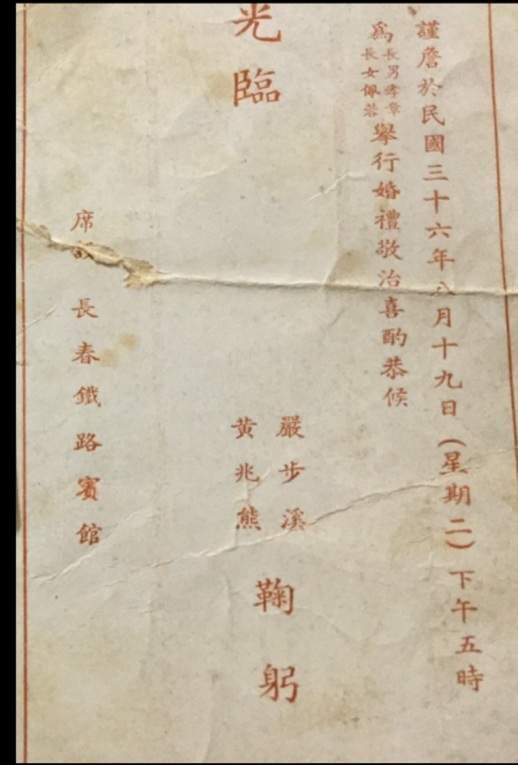 謹詹於民國三十六年八月十九日(星期二)下午五時
為長男孝章長女佩蓉舉行婚禮敬治喜酌恭候
光臨
嚴步溪
黃兆熊
鞠躬
席設長春鐵路賓館